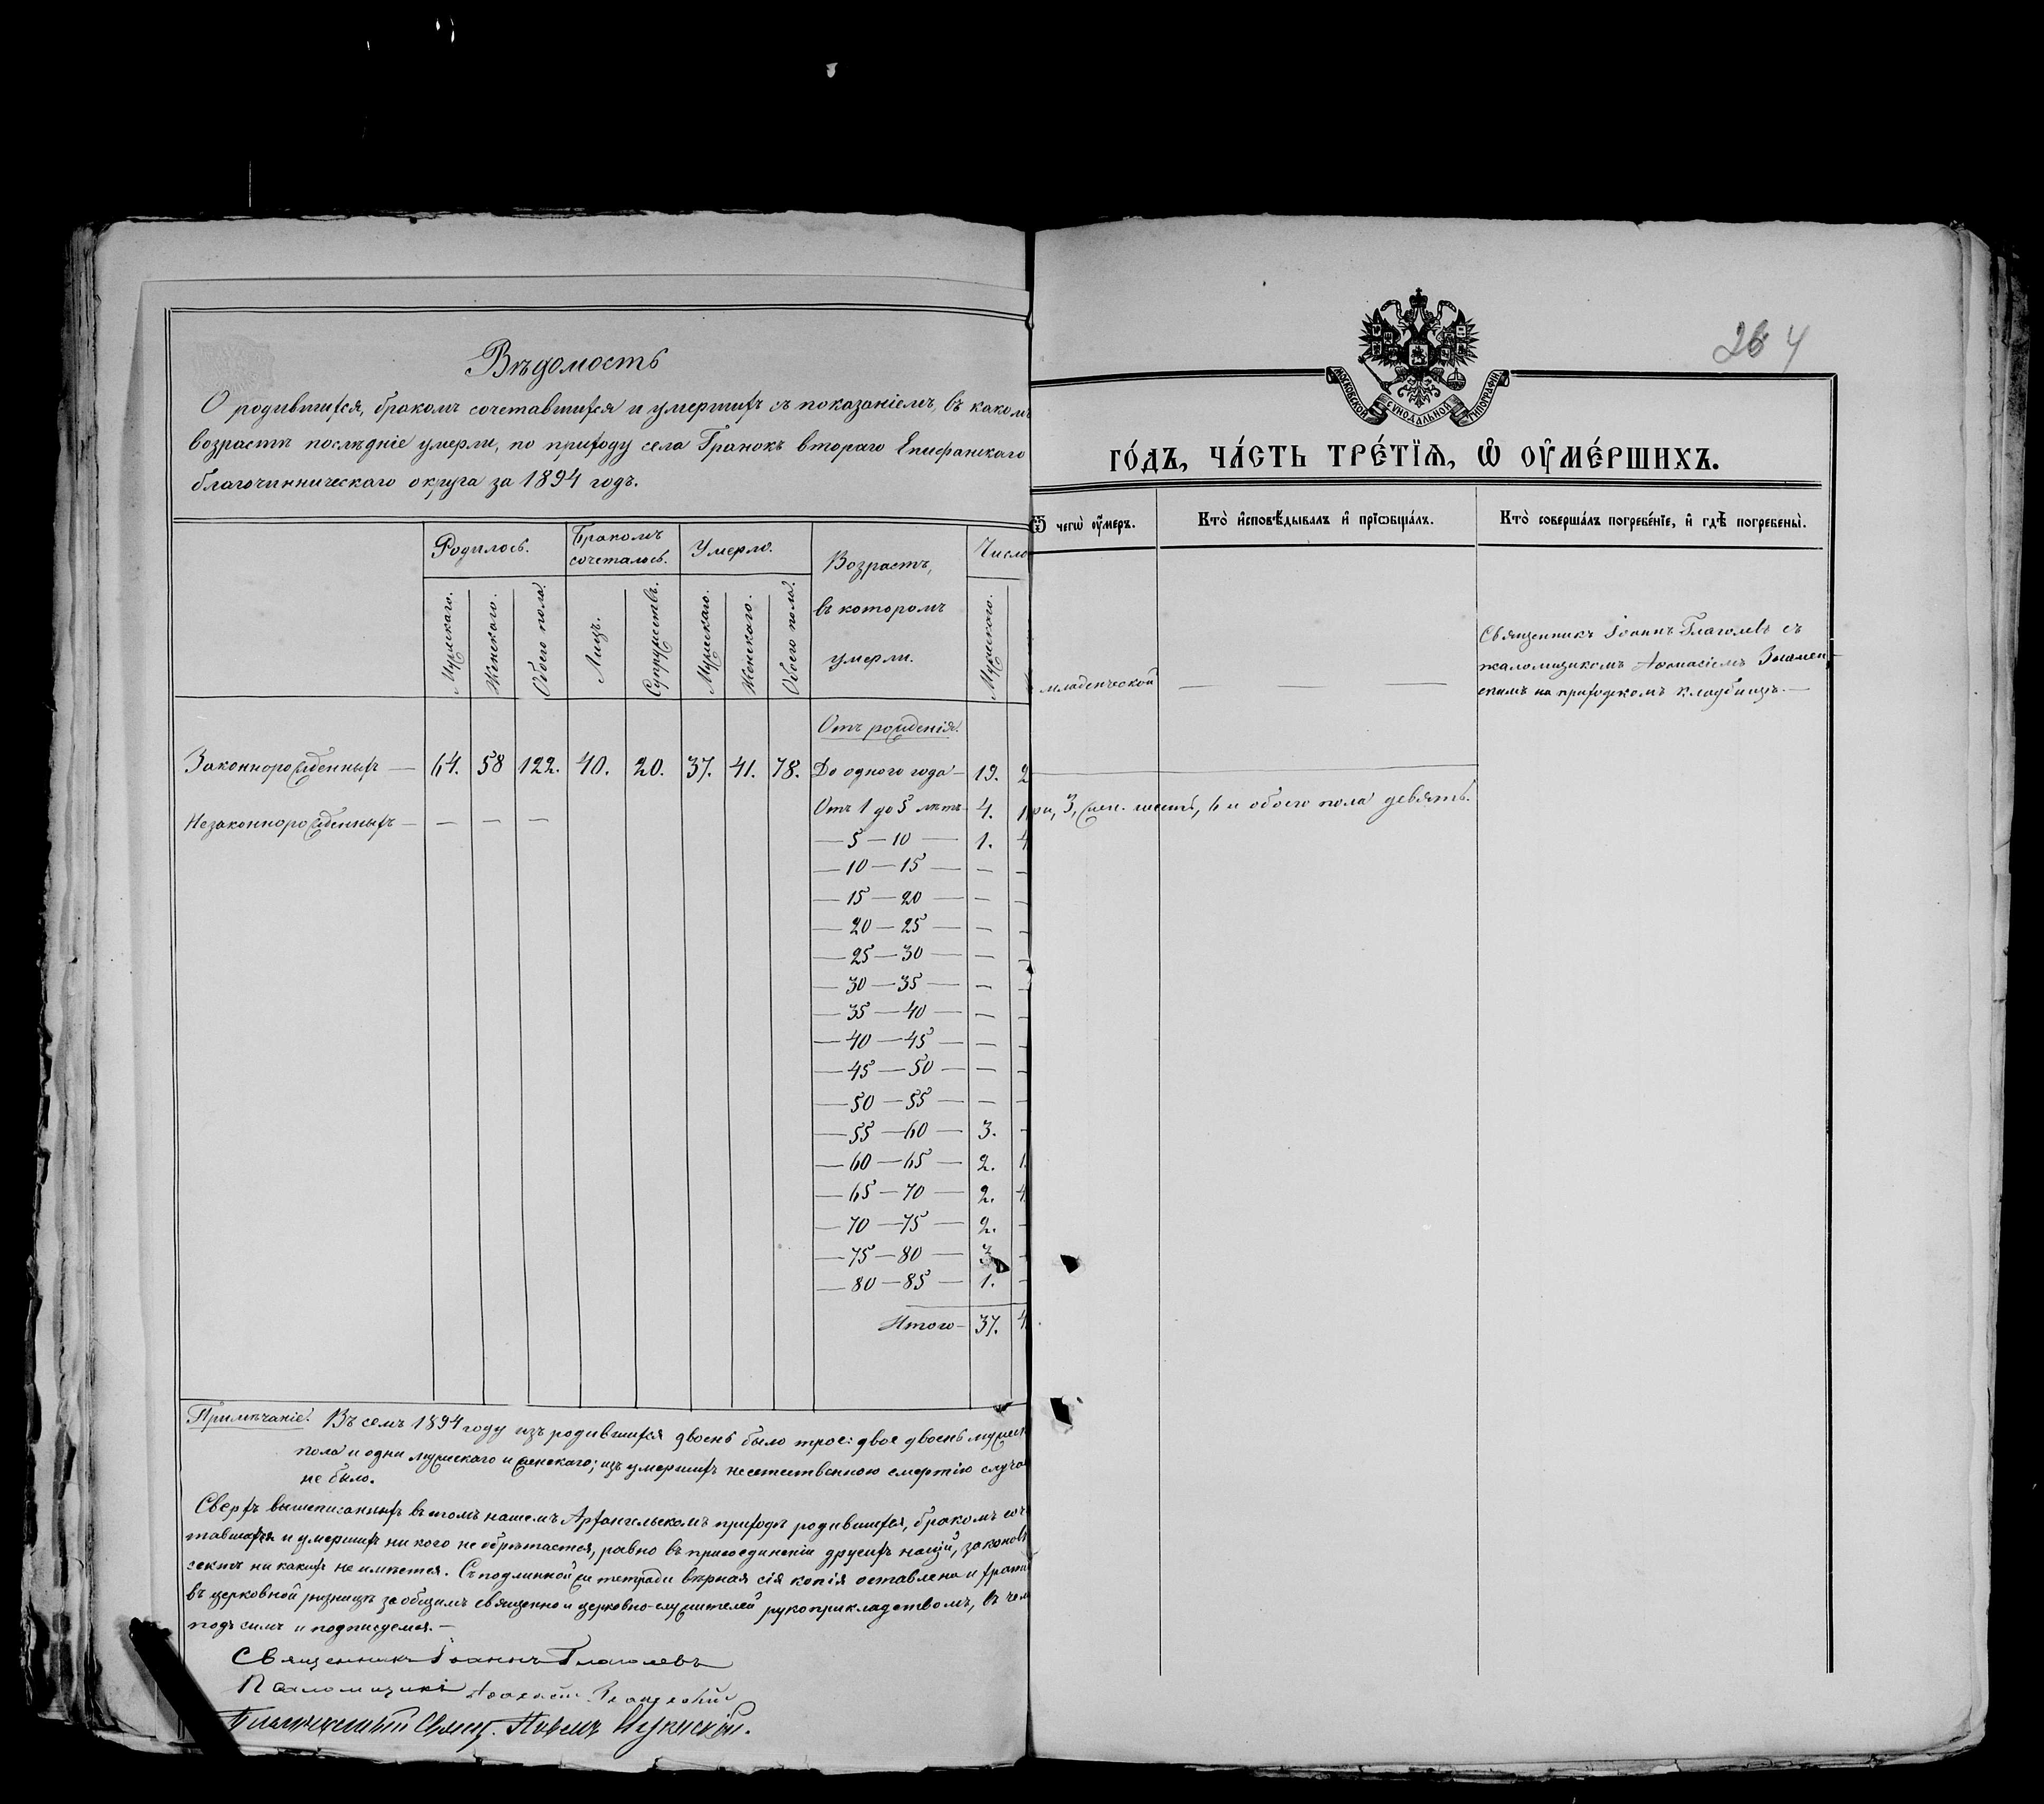 Вѣдомость
О родившихся, бракомъ сочетавшихся и умершихъ съ показаніемъ, въ каком
возрастѣ послѣдніе умерли, по приходу села Гранокъ втораго Епифанскаго
благочинническаго округа за 1894 годъ.
Родилось. Бракомъ сочеталось. Умерло. Возрастъ, въ которомъ умерли. Число
Мужескаго. Женскаго. Обоего пола. Лицъ. Супружествъ. Мужескаго. Женскаго. Обоего пола. Мужескаго.
Отъ рожденія.
Законнорожденныхъ — 64. 58 122. 40. 20. 37. 41. 78. До одного года — 19. 2
Незаконнорожденныхъ — — — —
Отъ 1 до 5 лѣтъ — 4. 1
— 5 — 10 — 1. 4
— 10 — 15 — — —
— 15 — 20 — — —
— 20 — 25 — — —
— 25 — 30 — — —
— 30 — 35 — — —
— 35 — 40 — — —
— 40 — 45 — — —
— 45 — 50 — — —
— 50 — 55 — — —
— 55 — 60 — 3. —
— 60 — 65 — 2. 1.
— 65 — 70 — 2. 4
— 70 — 75 — 2. —
— 75 — 80 — 3 —
— 80 — 85 — 1. —
Итого — 37. 4
Примѣчаніе. Въ семъ 1894 году изъ родившихся двоенъ было трое: двое двоенъ мужеск
пола и одни мужескаго и женскаго; изъ умершихъ неестественною смертію случа
не было.
Сверхъ вышеписанныхъ въ томъ нашемъ Архангельскомъ приходѣ родившихся, бракомъ соч
тавшихся и умершихъ ни кого не обрѣтается, равно въ присоединеніи другихъ націй, законовъ
сектъ ни какихъ не имѣется. Съ подлинной же тетради вѣрная сія копія оставлена и храни
въ церковной ризницѣ за общимъ священно и церковно-служителей рукоприкладствомъ, въ чем
подъ симъ и подписуемся. —
Священникъ Іоаннъ Глаголевъ
Псаломщикъ Аѳанасій Знаменскій
Благочинный Свящ. Павелъ
264
МОСКОВСКОЙ СѴНОДАЛЬНОЙ ТИПОГРАФІИ
ГО́ДЪ, ЧА́СТЬ ТРЕ́ТЇѦ, Ѡ҆ ОУ҆МЕ́РШИХЪ.
Ѿ чегѡ̀ оу҆́меръ. Кто̀ и҆сповѣ́дывалъ и҆ прїѡбща́лъ. Кто̀ соверша́лъ погребе́нїе, и҆ гдѣ̀ погребены̀.
младенческой — — —
Священникъ Іоаннъ Глаголевъ съ
псаломщикомъ Аѳанасіемъ Знамен-
скимъ на приходскомъ кладбищѣ. —
ри, 3, жен. шесть, 6 и обоего пола девять.